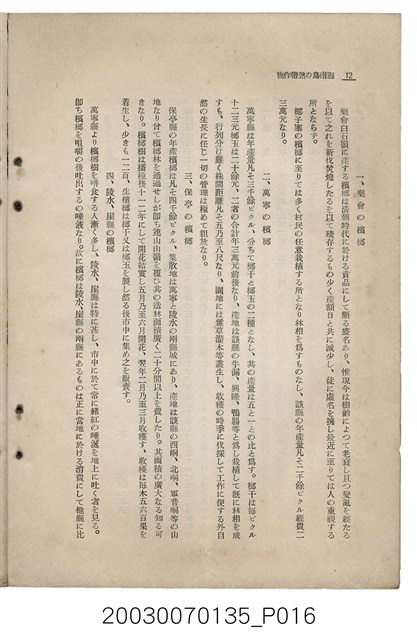 海南島の熱帶作物
12
一、樂會の檳榔
樂會白石嶺に産する檳榔は清朝時代に於ける貢品にして頗る盛名あり、惟現今は樹齡によつて老衰し且つ變亂を經たる
を以て之れを斬伐焚燒したるを以て殘存するもの少く產額日と共に減少し、徒に虛名を擁し最近に至りては人の重視する
所とならず。
椰子寨の檳榔に至りては多く村民の任意栽植する所となり林相を爲すものなし、該縣の年產量凡そ二千餘ピクル經費二
三萬元なり。
二、萬寧の檳榔
萬寧縣は年產量凡そ三千餘ピクル、分ちて榔干と榔玉の二種となし、其の產量は五と一との比と爲す。榔干は每ピクル
十二三元榔玉は二十餘元、二者の合計年三萬元前後なり、產地は該縣の牛漏、興隆、鴨腸等と爲し栽植して既に林相を成
すも、行列分け難く株間距離凡そ五乃至八尺なり、園地には雜草灌木等叢生し、收穫の時季に伐採して工作に便する外自
然の生長に任じ一切の管理は極めて粗放なり。
三、保亭の檳榔
保亭縣の年產檳榔は凡そ四千餘ピクル、集散地は萬寧と陵水の兩縣城にあり、產地は該縣の西峒、北峒、軍普峒等の山
地なり曾て檳榔林を通過せしが即ち連山山嶺を覆ひ其の造林面積廣く二十分間以上を費したり。其面積の廣大なる知る可
きなり。檳榔樹は播種後十二年にして開花結實し五月乃至六月開花、翌年二月乃至三月收穫す、收穫は每木五六百果を
着生し、少きも一二百、生檳榔は榔干又は榔玉を製し然る後市中に集め之を販賣す。
四、陵水、崖縣の檳榔
萬寧縣より檳榔樹を嗜食する人漸く多し、陵水、崖縣は特に甚し、市中に於て常に赭紅の唾涎を地上に吐く者を見る。
卽ち檳榔を咀嚼の後吐出するの唾液なり。故に檳榔は陵水、崖縣の兩縣にあるものは正に當地に於ける消費にして他縣に比
20030070135_P016